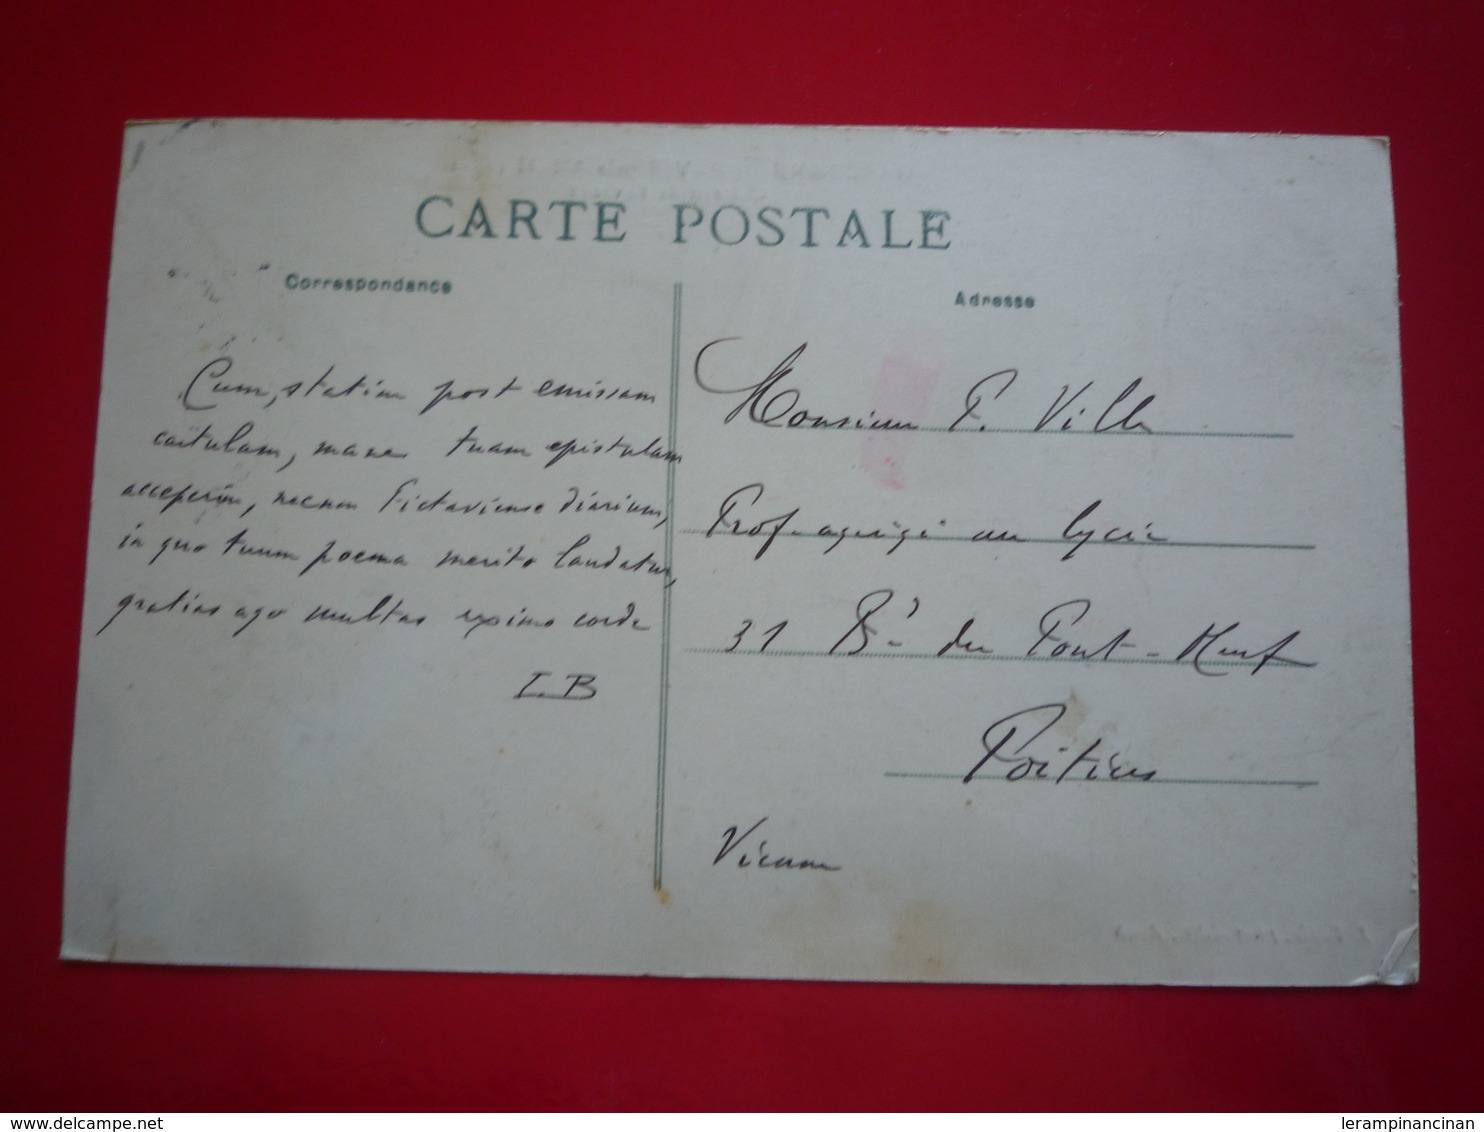 CARTE POSTALE
Correspondance
Adresse
Cum, statim post emissam
cartulam, mane tuam epistulam
acceperim, necnon Pictaviense diarium,
in quo tuum poema merito laudatur,
gratias ago multas ex imo corde
I. B
Monsieur F. Ville
Prof. agrégé au lycée
31 Bd du Pont-Neuf
Poitiers
Vienne
www.delcampe.net
lerampinancinan